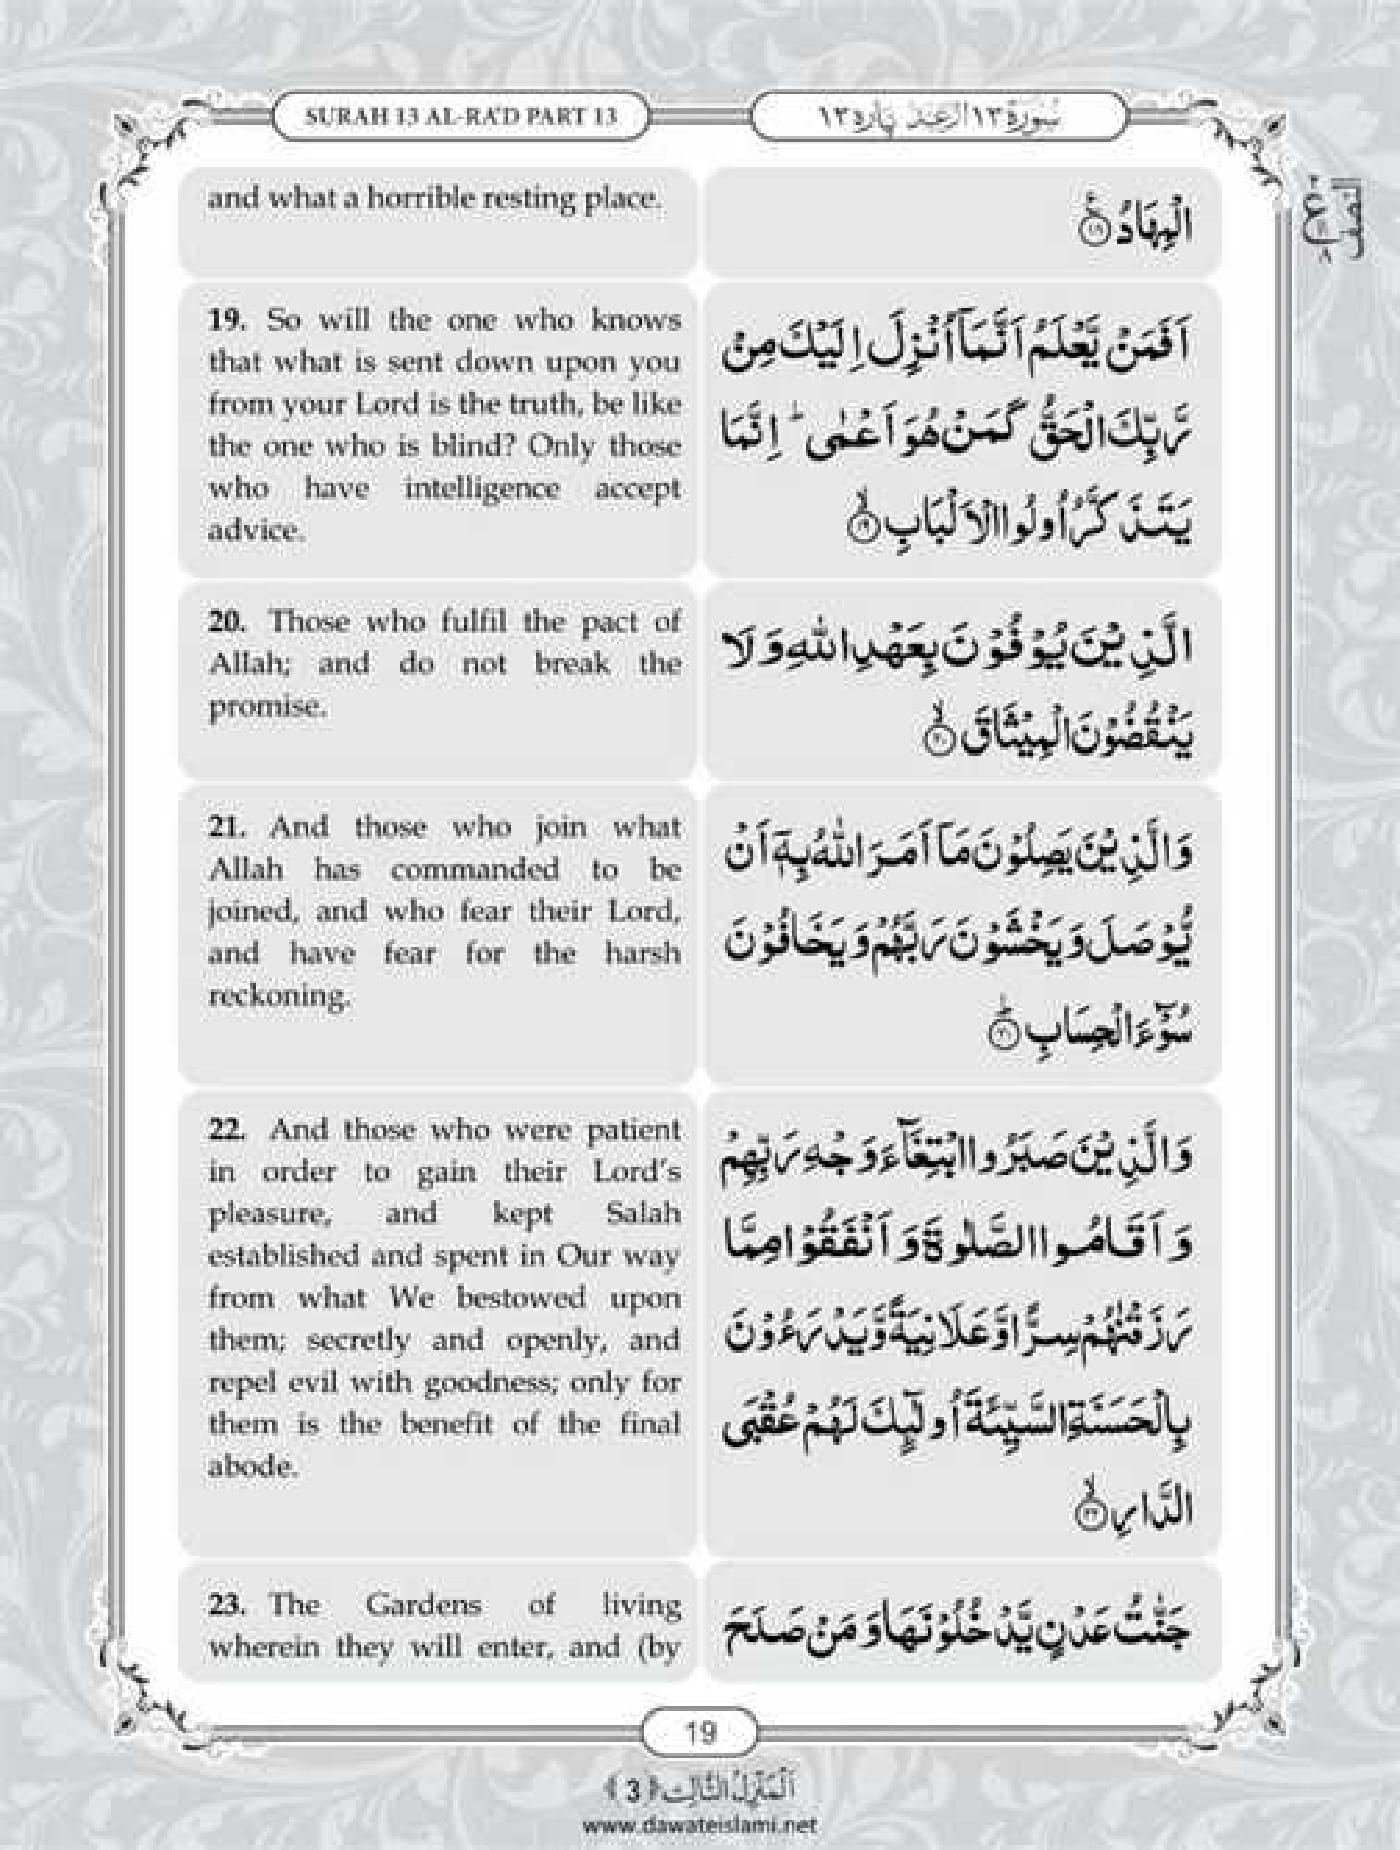 SURAH 13 AL-RA'D PART 13
سُوْرَةُ ١٣ الرَّعْد پارہ ١٣
النصف
and what a horrible resting place.
الْمِهَادُ ﴿١٨﴾
19. So will the one who knows
that what is sent down upon you
from your Lord is the truth, be like
the one who is blind? Only those
who have intelligence accept
advice.
اَفَمَنْ يَّعْلَمُ اَنَّمَاۤ اُنْزِلَ اِلَيْكَ مِنْ
رَّبِّكَ الْحَقُّ كَمَنْ هُوَ اَعْمٰى ؕ اِنَّمَا
يَتَذَكَّرُ اُولُوا الْاَلْبَابِ ﴿١٩﴾
20. Those who fulfil the pact of
Allah; and do not break the
promise.
الَّذِيْنَ يُوْفُوْنَ بِعَهْدِ اللّٰهِ وَ لَا
يَنْقُضُوْنَ الْمِيْثَاقَ ﴿٢٠﴾
21. And those who join what
Allah has commanded to be
joined, and who fear their Lord,
and have fear for the harsh
reckoning.
وَ الَّذِيْنَ يَصِلُوْنَ مَاۤ اَمَرَ اللّٰهُ بِهٖۤ اَنْ
يُّوْصَلَ وَ يَخْشَوْنَ رَبَّهُمْ وَ يَخَافُوْنَ
سُوْٓءَ الْحِسَابِ ﴿٢١﴾
22. And those who were patient
in order to gain their Lord's
pleasure, and kept Salah
established and spent in Our way
from what We bestowed upon
them; secretly and openly, and
repel evil with goodness; only for
them is the benefit of the final
abode.
وَ الَّذِيْنَ صَبَرُوا ابْتِغَآءَ وَجْهِ رَبِّهِمْ
وَ اَقَامُوا الصَّلٰوةَ وَ اَنْفَقُوْا مِمَّا
رَزَقْنٰهُمْ سِرًّا وَّ عَلَانِيَةً وَّ يَدْرَءُوْنَ
بِالْحَسَنَةِ السَّيِّئَةَ اُولٰٓىِٕكَ لَهُمْ عُقْبَى
الدَّارِ ﴿٢٢﴾
23. The Gardens of living
wherein they will enter, and (by
جَنّٰتُ عَدْنٍ يَّدْخُلُوْنَهَا وَ مَنْ صَلَحَ
19
اَلْمَنْزِلُ الثَّالِث ﴿3﴾
www.dawateislami.net